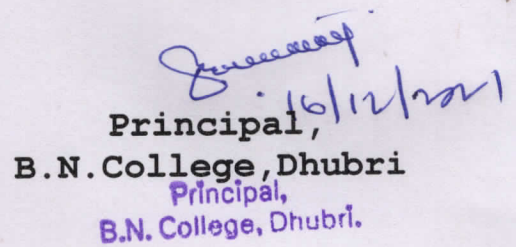 16/12/2021
Principal,
B.N.College,Dhubri
Principal,
B.N. College, Dhubri.